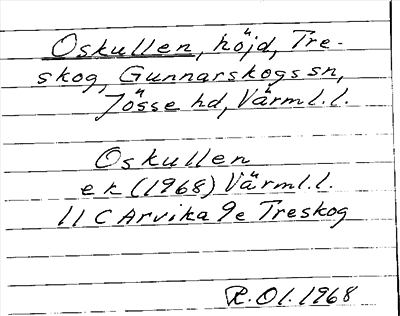 Oskullen, höjd, Tre-
skog, Gunnarskogs sn,
Jösse hd, Värml.l.
Oskullen
ek (1968) Värml.l.
11 C Arvika 9e Treskog
R.Ol.1968